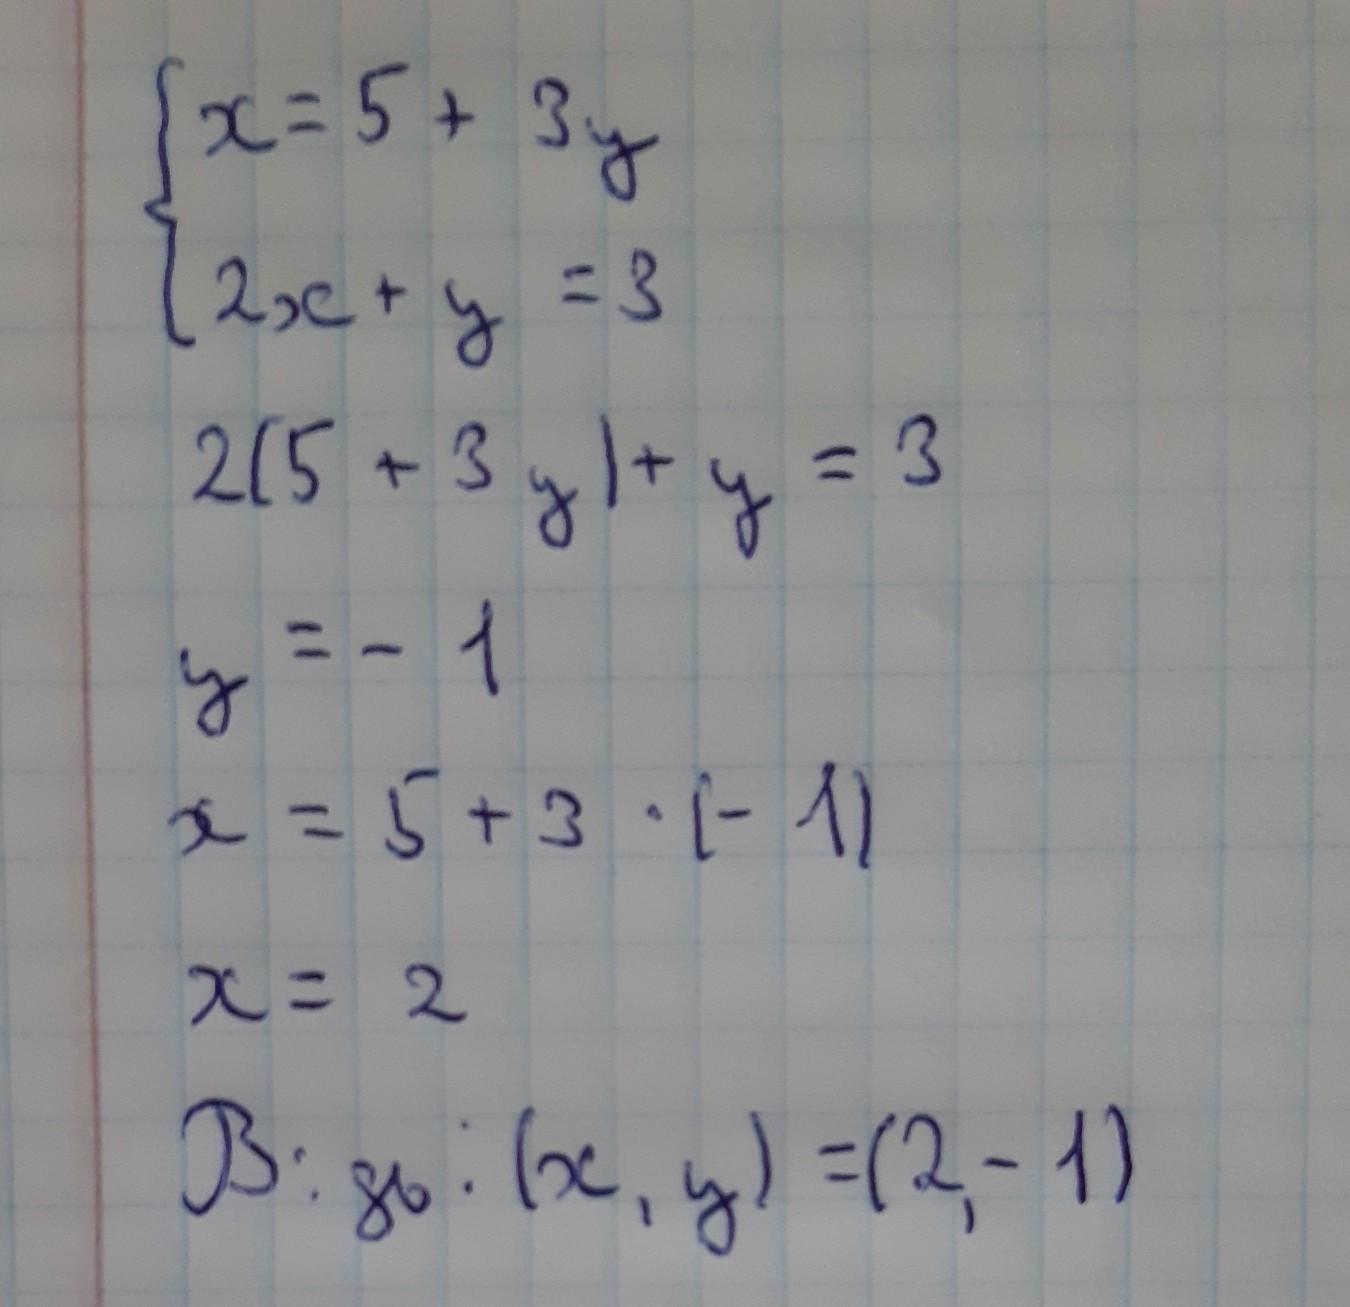 {x = 5 + 3y
2x + y = 3
2(5 + 3y) + y = 3
y = - 1
x = 5 + 3 · (- 1)
x = 2
(x, y) = (2, - 1)